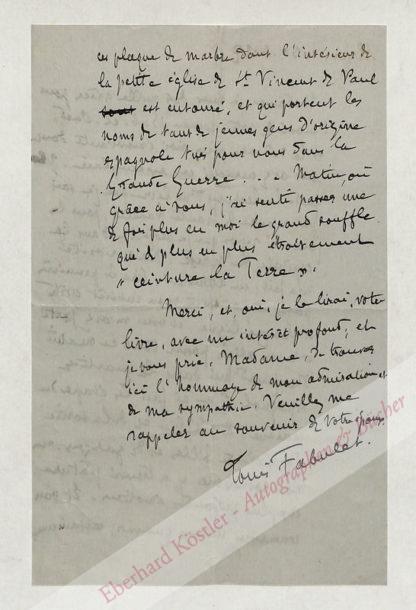 ces plaques de marbre dont l'intérieur de
la petite église de St Vincent de Paul
sont est entouré, et qui portent les
noms de tant de jeunes gens d'origine
espagnole tués pour nous dans la
Grande Guerre . . . Matin, où
grâce à vous, j'ai senti passer une
de fois plus en moi le grand souffle
qui de plus en plus étroitement
"ceinture la Terre".
Merci, et, oui, je le lirai, votre
livre, avec un intérêt profond, et
je vous prie, Madame, de trouver
ici l'hommage de mon admiration et
de ma sympathie. Veuillez me
rappeler au souvenir de votre
Louis Fabulet.
Eberhard Köstler - Autographen & Bücher